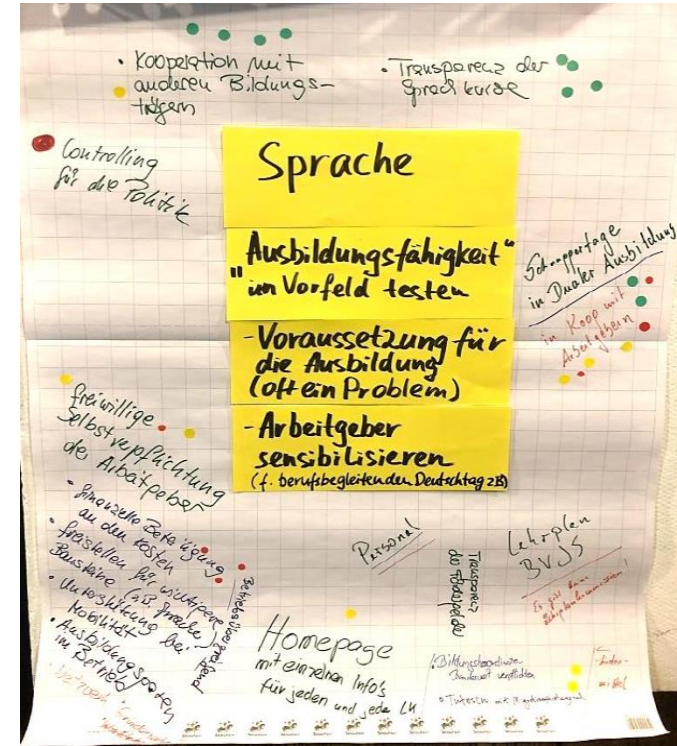 • Kooperation mit
anderen Bildungs-
trägern
• Transparenz der
Sprachkurse
Controlling
für die Politik
Sprache
"Ausbildungsfähigkeit"
im Vorfeld testen
- Voraussetzung für
die Ausbildung
(oft ein Problem)
- Arbeitgeber
sensibilisieren
(f. berufsbegleitenden Deutschtag zB)
Schnuppertage
in Dualer Ausbildung
in Koop mit
Arbeitgebern
freiwillige
Selbstverpflichtung
der Arbeitgeber
• finanzielle Beteiligung
an den Kosten
• freistellen für wichtigere
Bausteine (z.B. Sprache)
• Unterstützung bei
Mobilität
• Ausbildungspaten
im Betrieb
Betriebsübergreifend
Personal
Transparenz
der Fördergelder
Lehrplan
BVJS
Homepage
mit einzelnen Info's
für jeden und jede LK